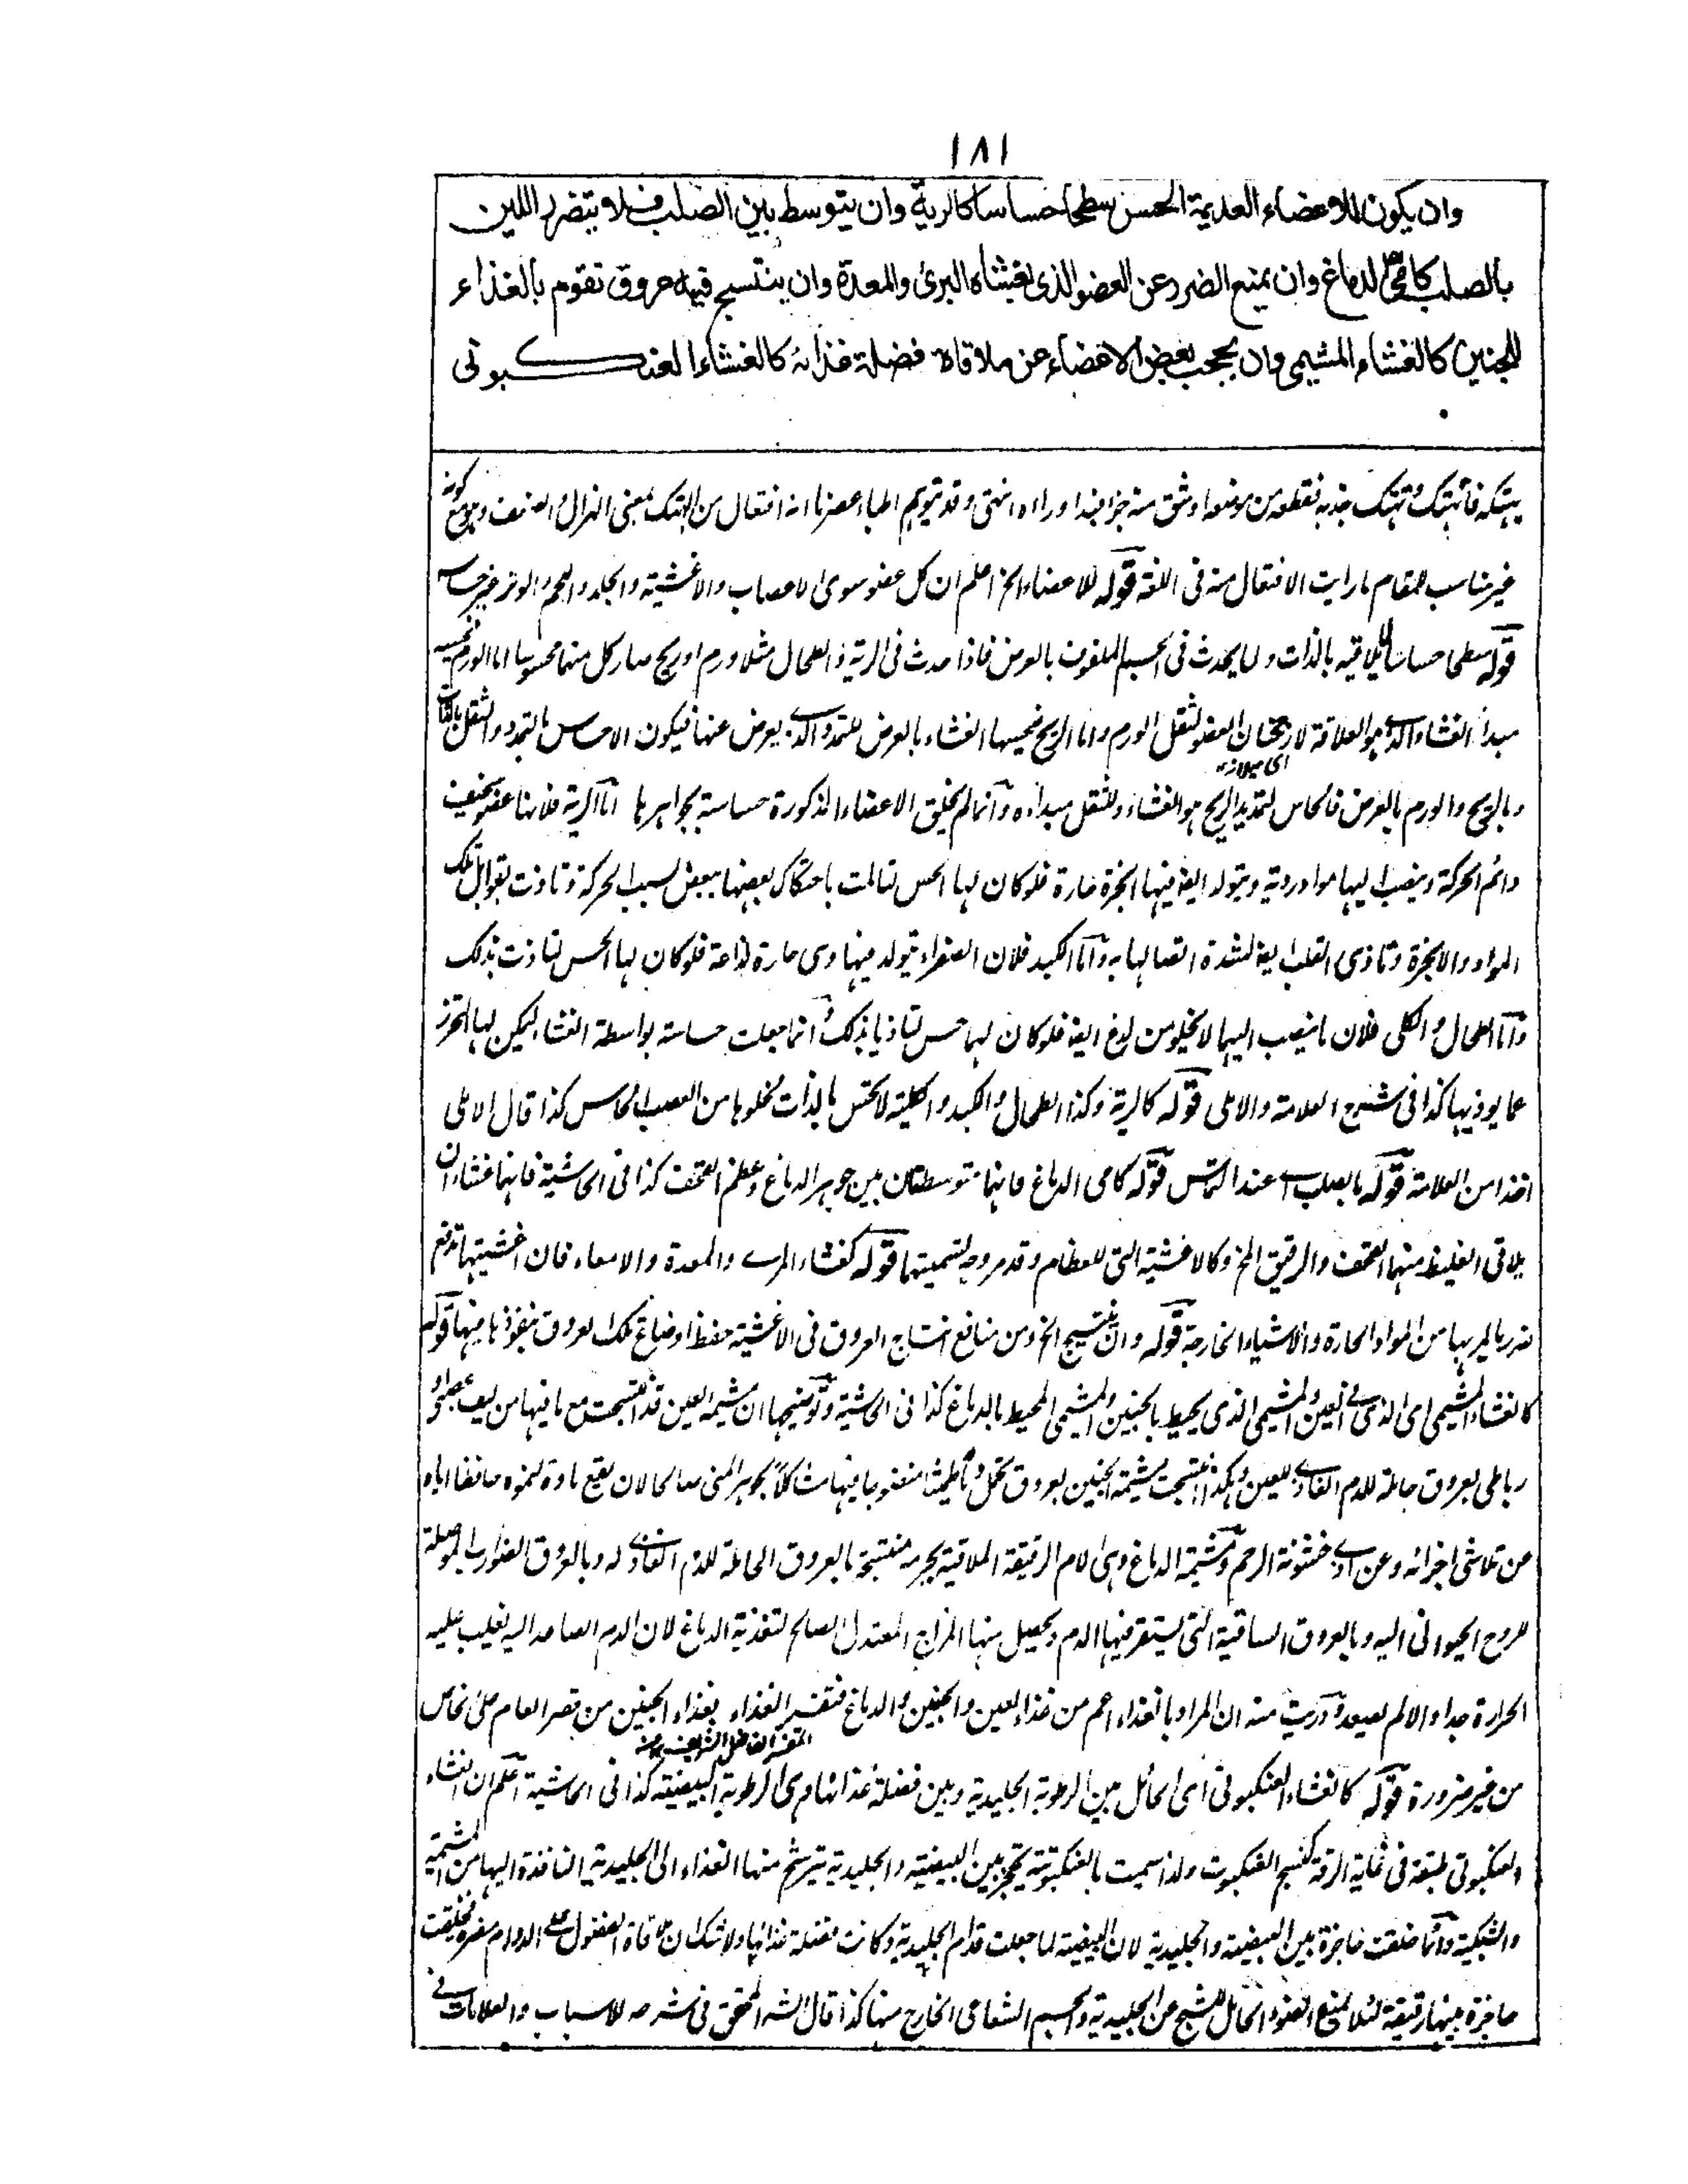 ١٨١
وان يكون للاعضاء العديمة الحس سطحا حساسا كالرية وان يتوسط بين الصلب فلا يتضرر اللين
بالصلب كامى الدماغ وان يمنع الضرر عن العضو الذى يغشاه المرى والمعدة وان ينتسج فيه عروق تقوم بالغذاء
للجنين كالغشاء المشيمى وان يحجب بعض الاعضاء عن ملاقاة فضلة غذائه كالغشاء العنكبوتى
من موضعه او شق منه جزا فبدا وراءه انتهى وقد يتوهم اطباء عصرنا انه افتعال من النهك بمعنى الهزال والضعف وهو مع كونه
غير مناسب للمقام ما رايت الافتعال منه فى اللغة قوله للاعضاء الخ اعلم ان كل عضو سوى الاعصاب والاغشية والجلد واللحم والوتر غير حساس
قوله سطحا حساسا لما يلاقيه بالذات ولما يحدث فى الجسم الملفوف بالعرض فاذا حدث فى الرية والطحال مثلا ورم او ريح صار كل منهما محسوسا اما الورم فيحسه
مبدأ الغشاء الذى هو العلاقة لارجحنان العضو لثقل الورم واما الريح فيحسها الغشاء بالعرض للتمدد الذى يعرض عنها فيكون الاحساس بالتمدد والثقل بالذات
اى ميلانه
وبالريح والورم بالعرض فالحاس لتمديد الريح هو الغشاء وللثقل مبداءه وانما لم يخلق الاعضاء المذكورة حساسة بجواهرها اما الرية فلانها عضو سخيف
دائم الحركة وينصب اليها مواد ردية ويتولد ايضا فيها ابخرة حارة فلو كان لها الحس لتالمت باحتكاك بعضها ببعض بسبب الحركة وتاذت بقوابل تلك
المواد والابخرة وتاذى القلب ايضا لشدة اتصالها به واما الكبد فلان الصفراء يتولد فيها وهى حارة لذاعة فلو كان لها الحس لتاذت بذلك
واما الطحال والكلى فلان ما ينصب اليهما لا يخلو من لدغ ايضا فلو كان لهما حس لتاذيا بذلك وانما جعلت حساسة بواسطة الغشاء ليكن لها التحرز
عما يوذيها كذا فى شرح العلامة والاملى قوله كالرية وكذا الطحال والكبد والكلية لا تحس بالذات لخلوها من العصب الحاس كذا قال الاملى
اخذا من العلامة قوله بالصلب عند التماس قوله كامى الدماغ فانهما متوسطتان بين جوهر الدماغ وعظم القحف كذا فى الحاشية فانهما غشاءان
يلاقى الغليظ منهما القحف والرقيق المخ وكالاغشية التى للعظام وقد مر وجه تسميتهما قوله كغشاء المرى والمعدة والامعاء فان اغشيتها تدفع
ضرر ما يمر بها من المواد الحارة والاشياء الخارجة قوله وان ينتسج الخ ومن منافع انتساج العروق فى الاغشية حفظ اوضاع تلك العروق بنفوذها فيها قوله
كالغشاء المشيمى اى الذى فى العين والمشيمى الذى يحيط بالجنين والمشيمى المحيط بالدماغ كذا فى الحاشية وتوضيحها ان مشيمة العين قد انتسجت مع ما فيها من ليف عصبى او
رباطى بعروق حاملة للدم الغاذى للعين وهكذا انتسجت مشيمة الجنين بعروق تحمل طمثا منضوجا فيها مشاكلا بجوهر المنى صالحا لان يقع مادة لنموه حافظا اياه
عن تلاشى اجزائه وعن اذى خشونة الرحم ومشيمة الدماغ وهى الام الرقيقة الملاقية بجرمه منتسجة بالعروق الحاملة للدم الغاذى له وبالعروق الضوارب الموصلة
للروح الحيوانى اليه وبالعروق الساقية التى يستقر فيها الدم ويحصل منها المزاج المعتدل الصالح لتغذية الدماغ لان الدم الصاعد اليه يغلب عليه
الحرارة جدا والا لم يصعد ودريت منه ان المراد بالغذاء اعم من غذاء العين والجنين والدماغ فتفسير الغذاء بغذاء الجنين من قصر العام على خاص
المفسر الفاضل الشريف منه
من غير ضرورة قوله كالغشاء العنكبوتى اى الحائل بين الرطوبة الجليدية وبين فضلة غذائها وهى الرطوبة البيضية كذا فى الحاشية اعلم ان الغشاء
العنكبوتى طبقة فى غاية الرقة كنسج العنكبوت ولذا سميت بالعنكبوتية يحجز بين البيضية والجليدية يترشح منها الغذاء الى الجليدية النافذة اليها من المشيمية
والشبكية وانما خلقت حاجزة بين البيضية والجليدية لان البيضية لما جعلت قدام الجليدية وكانت فضلة غذائها ولا شك ان ملاقاة الفضول على الدوام مضرة فخلقت
حاجزة بينهما رقيقة لئلا يمنع الضوء الحامل للشبح عن الجليدية والجسم الشعاعى الخارج منها كذا قال الشارح المحقق فى شرحه للاسباب والعلامات فى